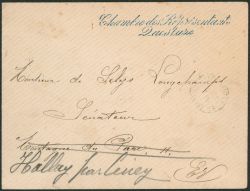 Chambre des Représentants
Questure
Monsieur de Selys Longchamps
Sénateur
Montagne du Parc, 11.
Halloy par Ciney